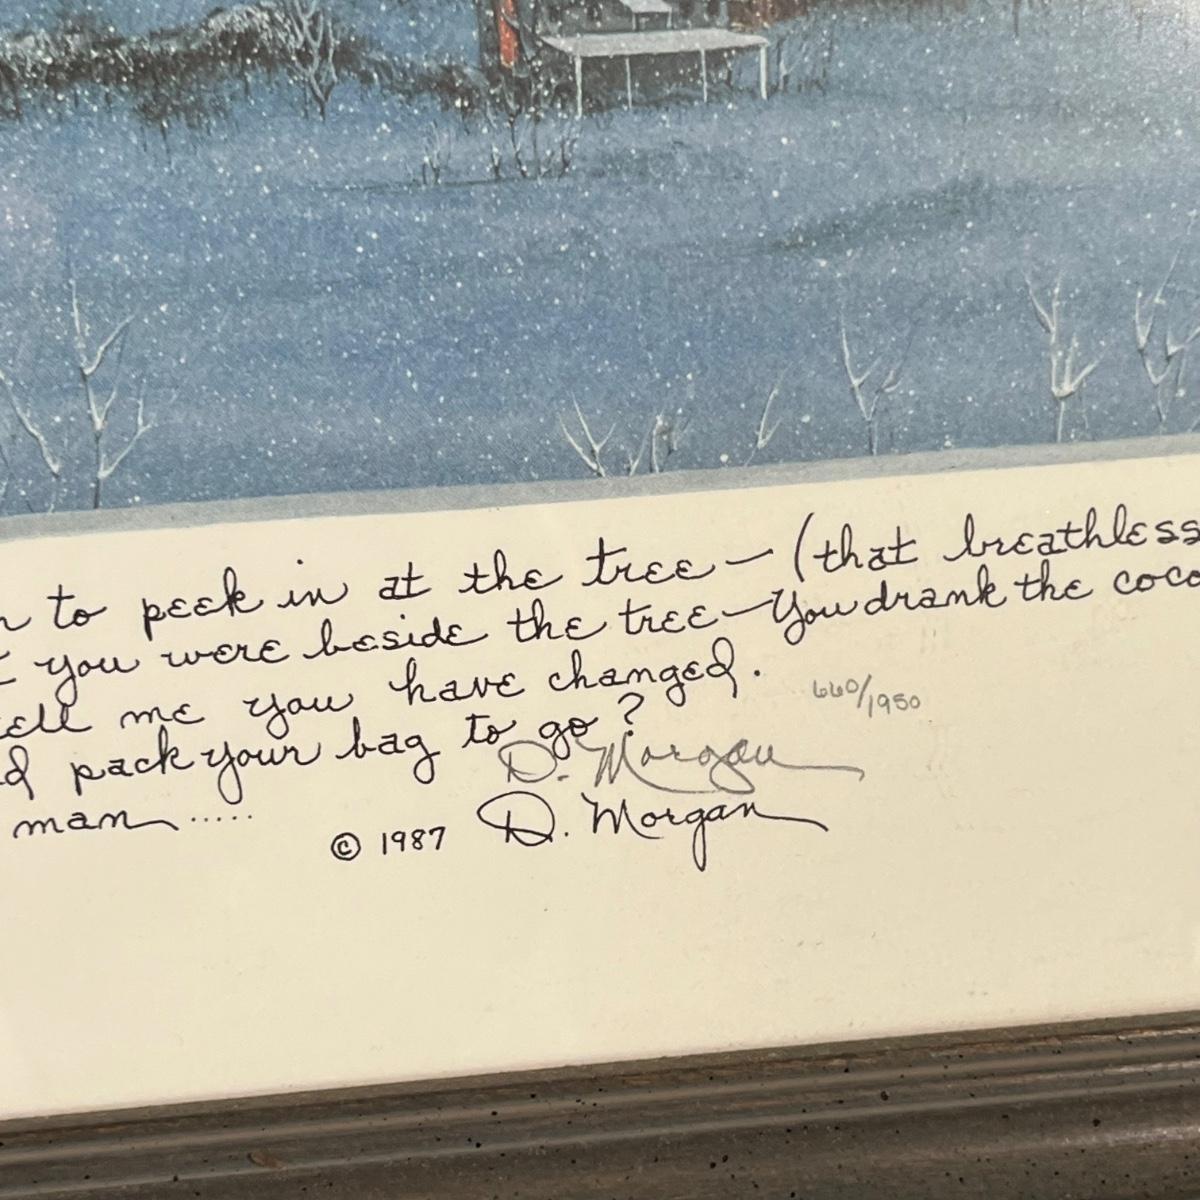 to peek in at the tree — (that breathless
you were beside the tree — You drank the
me you have changed.
660/1950
pack your bag to go?
D. Morgan
man.....
© 1987 D. Morgan